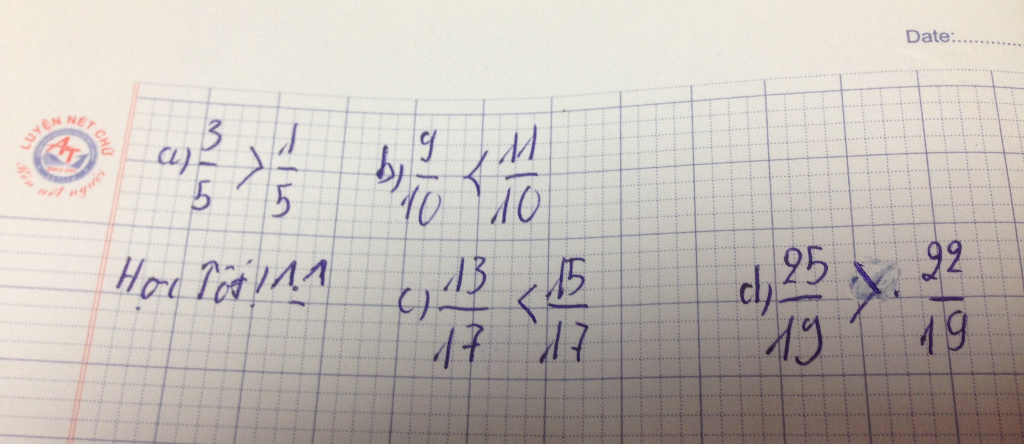 Date:
LUYỆN NÉT CHỮ
AT
Rèn nết người
a) 3/5 > 1/5 b) 9/10 < 11/10
Học Tốt! 1.1
c) 13/17 < 15/17 d) 25/19 > 22/19